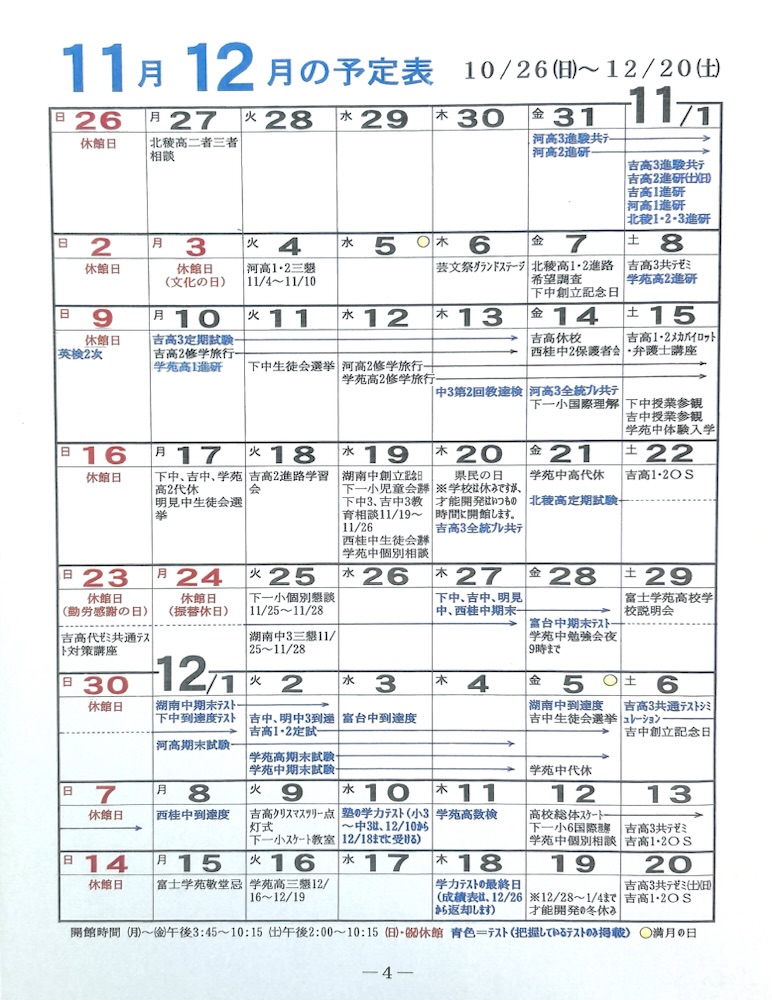 11月 12月の予定表 10/26(日)～12/20(土)
日 26
休館日
月 27
北稜高二者三者
相談
火 28
水 29
木 30
金 31
河高3進駿共テ
河高2進研
11/1
吉高3進駿共テ
吉高2進研(土)(日)
吉高1進研
河高1進研
北稜1・2・3進研
日 2
休館日
月 3
休館日
(文化の日)
火 4
河高1・2三懇
11/4～11/10
水 5
木 6
芸文祭グランドステージ
金 7
北稜高1・2進路
希望調査
下中創立記念日
土 8
吉高3共テゼミ
学苑高2進研
日 9
休館日
英検2次
月 10
吉高3定期試験
吉高2修学旅行
学苑高1進研
火 11
下中生徒会選挙
水 12
河高2修学旅行
学苑高2修学旅行
木 13
中3第2回教達検
金 14
吉高休校
西桂中2保護者会
河高3全統プレ共テ
下一小国際理解
土 15
吉高1・2メカパイロット
・弁護士講座
下中授業参観
吉中授業参観
学苑中体験入学
日 16
休館日
月 17
下中、吉中、学苑
高2代休
明見中生徒会選
挙
火 18
吉高2進路学習
会
水 19
湖南中創立記念日
下一小児童会選挙
下中3、吉中3教
育相談11/19～
11/26
西桂中生徒会選挙
学苑中個別相談
木 20
県民の日
※学校は休みですが、
才能開発はいつもの
時間に開館します。
吉高3全統プレ共テ
金 21
学苑中高代休
北稜高定期試験
土 22
吉高1・2OS
日 23
休館日
(勤労感謝の日)
吉高代ゼミ共通テス
ト対策講座
月 24
休館日
(振替休日)
火 25
下一小個別懇談
11/25～11/28
湖南中3三懇11/
25～11/28
水 26
木 27
下中、吉中、明見
中、西桂中期末
金 28
富台中期末テスト
学苑中勉強会夜
9時まで
土 29
富士学苑高校学
校説明会
日 30
休館日
12/1
湖南中期末テスト
下中到達度テスト
河高期末試験
火 2
吉中、明中3到達
吉高1・2定試
学苑高期末試験
学苑中期末試験
水 3
富台中到達度
木 4
金 5
湖南中到達度
吉中生徒会選挙
学苑中代休
土 6
吉高3共通テストシミ
ュレーション
吉中創立記念日
日 7
休館日
月 8
西桂中到達度
火 9
吉高クリスマスツリー点
灯式
下一小スケート教室
水 10
塾の学力テスト(小3
～中3は、12/10から
12/18までに受ける)
木 11
学苑高数検
12
高校総体スケート
下一小6国際理解
学苑中個別相談
13
吉高3共テゼミ
吉高1・2OS
日 14
休館日
月 15
富士学苑敬堂忌
火 16
学苑高三懇12/
16～12/19
水 17
木 18
学力テストの最終日
(成績表は、12/26
から返却します)
19
※12/28～1/4まで
才能開発の冬休み
20
吉高3共テゼミ(土)(日)
吉高1・2OS
開館時間 (月)～(金)午後3:45～10:15 (土)午後2:00～10:15 (日)・(祝)休館 青色＝テスト(把握しているテストのみ掲載) 満月の日
―4―